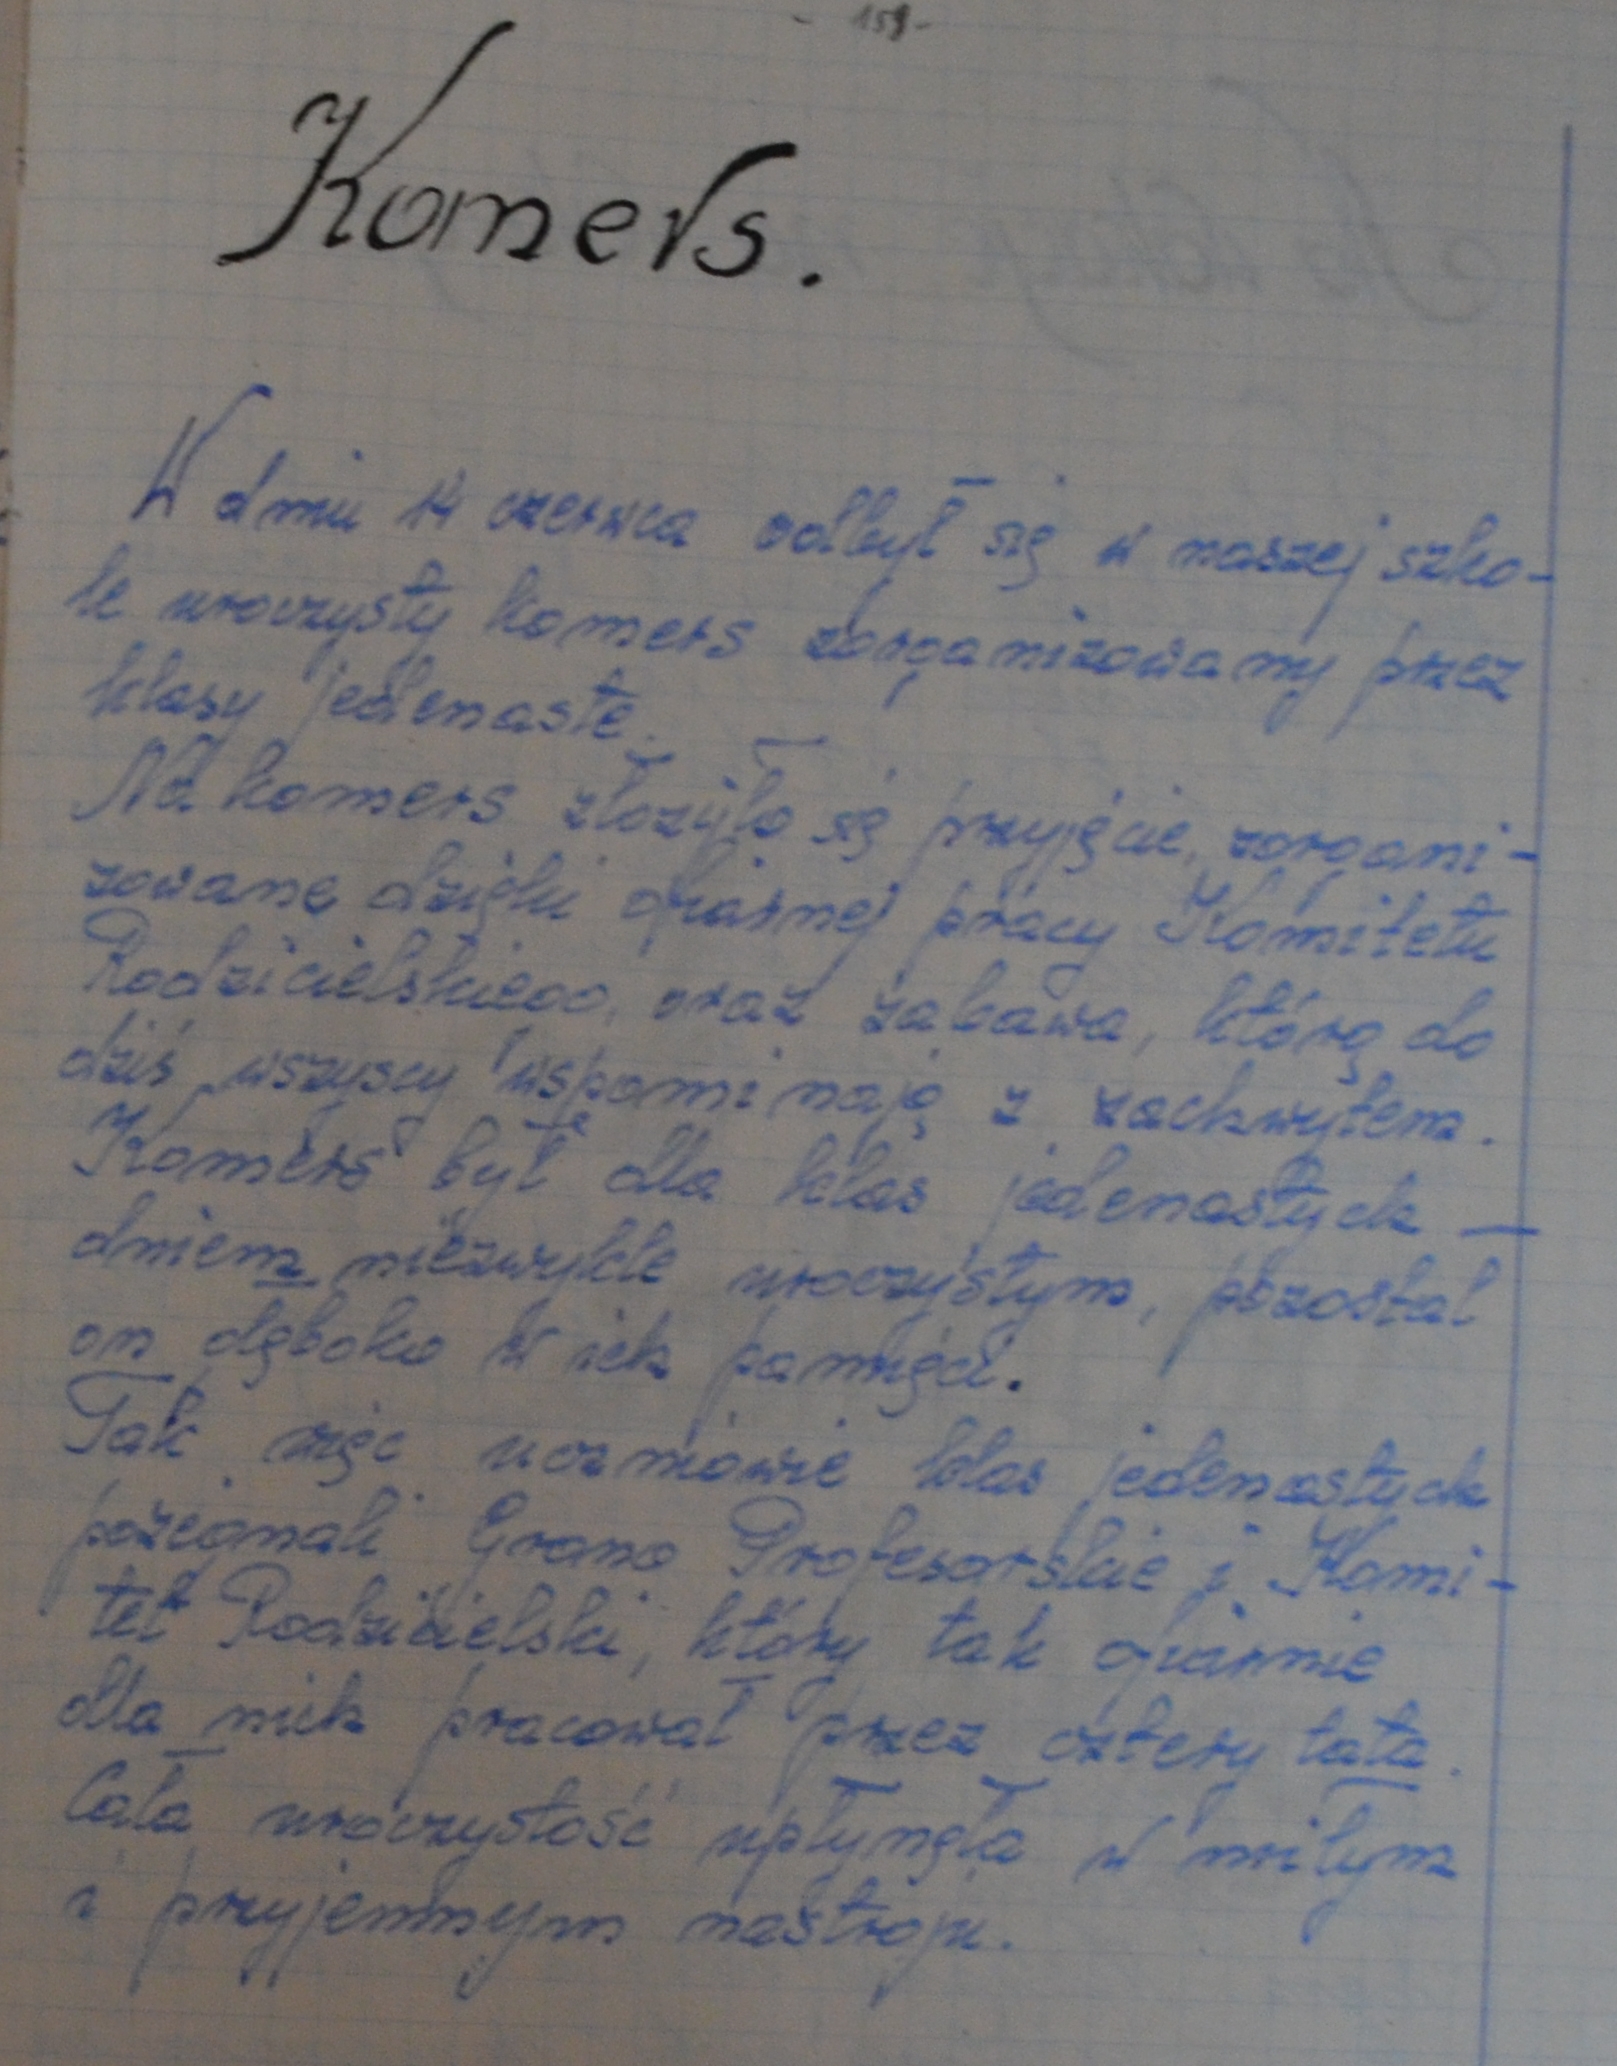 - 159 -
Komers.
W dniu 14 czerwca odbył się w naszej szko-
le uroczysty komers zorganizowany przez
klasy jedenaste.
Na komers złożyło się przyjęcie, zorgani-
zowane dzięki ofiarnej pracy Komitetu
Rodzicielskiego, oraz zabawa, którą do
dziś wszyscy wspominają z zachwytem.
Komers był dla klas jedenastych —
dniem niezwykle uroczystym, pozostał
on głęboko w ich pamięci.
Tak więc uczniowie klas jedenastych
pożegnali Grono Profesorskie i Komi-
tet Rodzicielski, który tak ofiarnie
dla nich pracował przez cztery lata.
Cała uroczystość upłynęła w miłym
i przyjemnym nastroju.